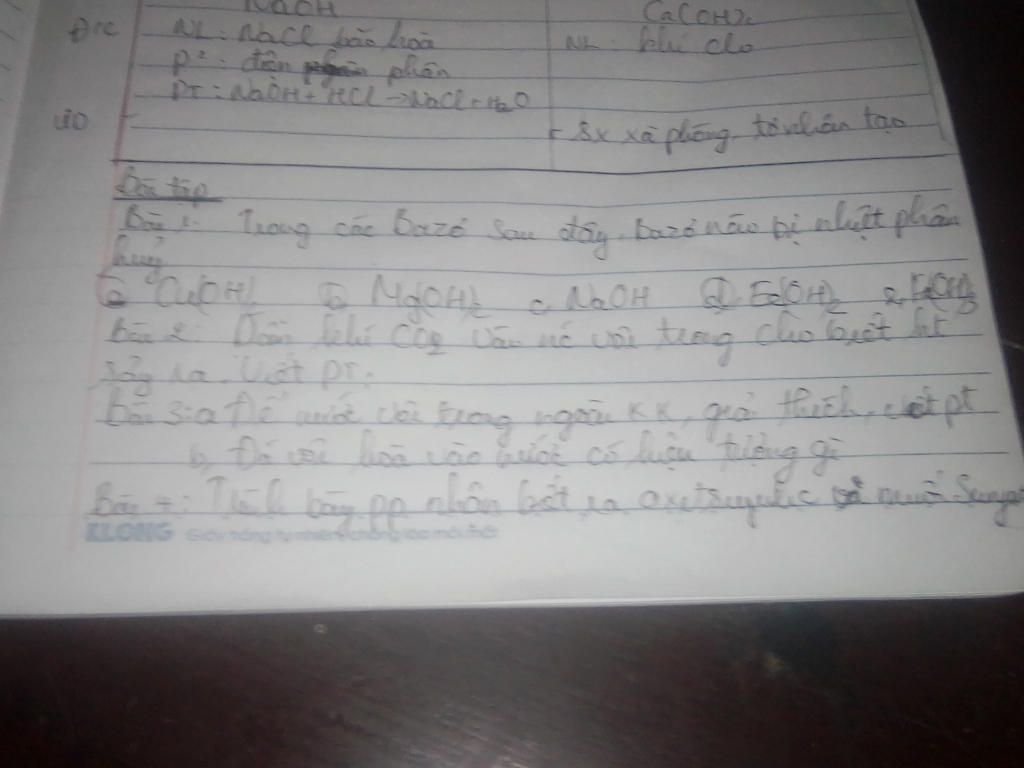 NaOH Ca(OH)2
Đ/c NL: NaCl bão hoà NL: khí clo
P²: điện phân
PT: NaOH + HCl → NaCl + H2O
ƯD - Sx xà phòng, tơ nhân tạo
Bài tập
Bài 1: Trong các bazơ sau đây, bazơ nào bị nhiệt phân
huỷ
a Cu(OH)2 b Mg(OH)2 c NaOH d Fe(OH)2 e Fe(OH)3
Bài 2: Dẫn khí CO2 vào nc vôi trong cho biết ht
xảy ra. Viết PT.
Bài 3: a Để nước vôi trong ngoài KK, giải thích, viết pt
b, Đá vôi hoà vào nước có hiện tượng gì
Bài 4: Trình bày pp nhận biết ra
KLONG